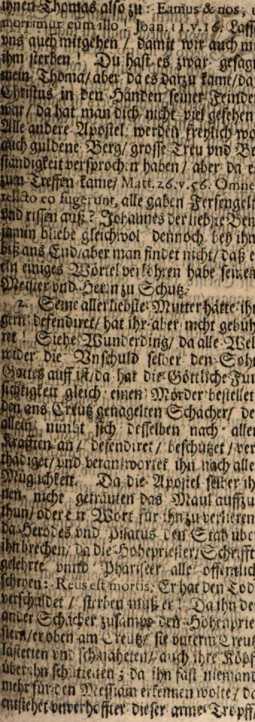 ihnen Thomas also zu: Eamus & nos, ut
moriamur cum illo, Joan. 11. v. 16. Lasst
vns auch mitgehen / damit wir auch mit
ihm sterben. Du hast es zwar gesagt
mein Thoma/ aber da es darzu kame/ da
Christus in den Händen seiner Feinden
war/ da hat man dich nicht viel gesehen.
Alle andere Apostel werden freylich wol
auch guldene Berg/ grosse Treu vnd Be-
ständigkeit versprochen haben/ aber da es
zum Treffen kame/ Matt. 26. v. 56. Omnes
relicto eo fugerunt, alle gaben Fersengelt
vnd rissen auß? Johannes der liebste Ben-
jamin bliebe gleichwol dennoch bey ihm
biß ans End/ aber man findet nicht/ daß er
ein einiges Wörtel verlohren habe seinen
Meister vnd Herrn zu Schutz.
2. Seine allerliebste Mutter hätte ihn
gern defendiret/ hat ihr aber nicht gebüh-
ret! Siehe Wunderding/ da alle Welt
wider die Vnschuld selber den Sohn
Gottes auff ist/ da hat die Göttliche Für-
sichtigkeit gleich einen Mörder bestellet
den ans Creutz genagelten Schächer/ der
allein nimbt sich desselben nach allen
Kräfften an/ defendiret/ beschützet/ ver-
thädiget/ vnd verantwortet ihn nach aller
Mügligkeit. Da die Apostel selber ih-
nen nicht getrauten das Maul auffzu-
thun/ oder ein Wort für ihn zu verlieren
da Herodes vnd Pilatus den Stab über
ihn brechen/ da die Hohepriester/ Schrifft-
gelehrte vnnd Phariseer alle offentlich
schryen: Reus est mortis, Er hat den Tod
verschuldet / sterben muß er! Da ihn der
ander Schächer zusampt den Hohenprie-
stern/ er oben am Creutz/ sie vnterm Creutz
lästerten vnd schmäheten/ auch ihre Köpff
über ihn schüttleten; da ihn fast niemand
mehr für den Messiam erkennen wolte/ da
entstehet vnverhoffter dieser arme Tropff